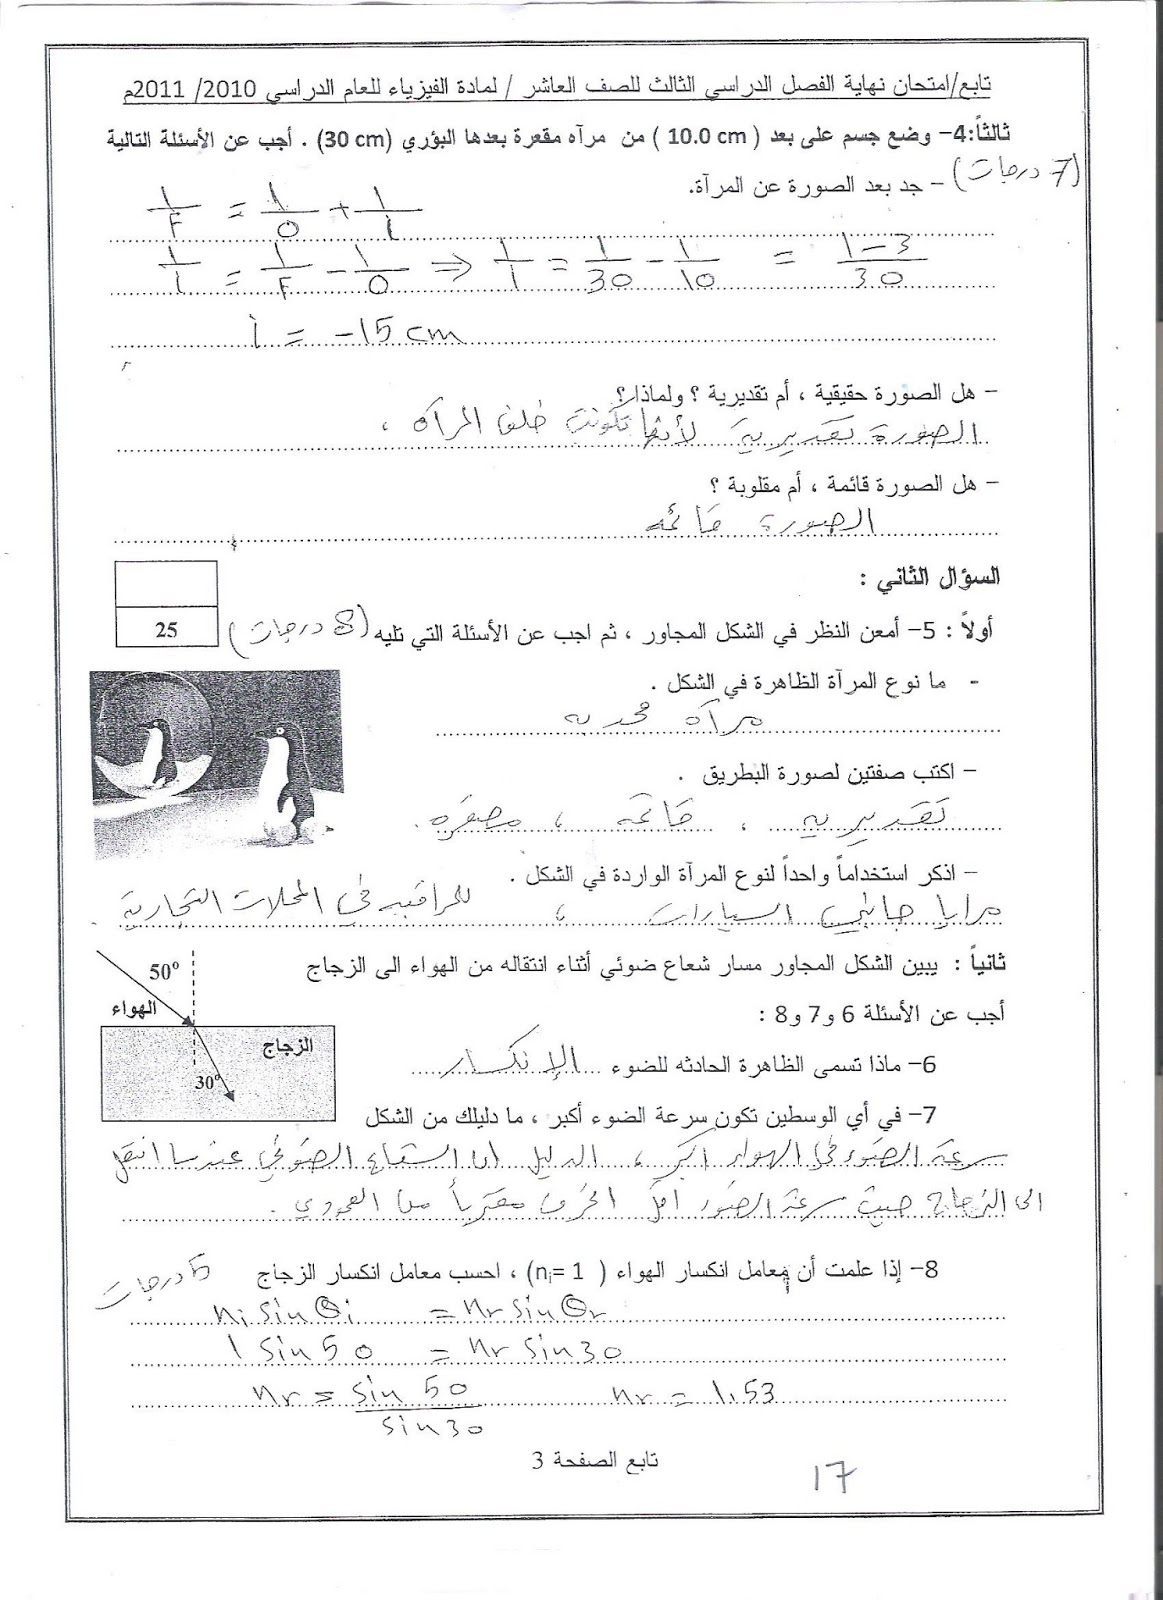 تابع/امتحان نهاية الفصل الدراسي الثالث للصف العاشر / لمادة الفيزياء للعام الدراسي 2010/ 2011م
ثالثاً:4– وضع جسم على بعد ( 10.0 cm ) من مرآه مقعرة بعدها البؤري (30 cm) . أجب عن الأسئلة التالية
(7 درجات)
– جد بعد الصورة عن المرآة.
1/F = 1/O + 1/i
1/i = 1/F - 1/O ⇒ 1/i = 1/30 - 1/10 = 1-3/30
i = -15 cm
– هل الصورة حقيقية ، أم تقديرية ؟ ولماذا ؟
الصورة تقديرية لأنها تكونت خلف المرآه .
– هل الصورة قائمة ، أم مقلوبة ؟
الصورة قائمه
السؤال الثاني :
25
أولاً : 5– أمعن النظر في الشكل المجاور ، ثم اجب عن الأسئلة التي تليه (8 درجات)
- ما نوع المرآة الظاهرة في الشكل .
مرآه محدبه
– اكتب صفتين لصورة البطريق .
تقديريه ، قائمه ، مصغره .
– اذكر استخداماً واحداً لنوع المرآة الواردة في الشكل .
مرايا جانبي السيارات ، للمراقبه في المحلات التجارية .
ثانياً : يبين الشكل المجاور مسار شعاع ضوئي أثناء انتقاله من الهواء الى الزجاج
أجب عن الأسئلة 6 و7 و8 :
50º
الهواء
الزجاج
30º
6– ماذا تسمى الظاهرة الحادثه للضوء الإنكسار
7– في أي الوسطين تكون سرعة الضوء أكبر ، ما دليلك من الشكل
سرعة الضوء في الهواء أكبر ، الدليل ان الشعاع الضوئي عندما انتقل
الى الزجاج حيث سرعة الضوء اقل انحرف مقترباً من العمودي .
8– إذا علمت أن معامل انكسار الهواء ( ni= 1) ، احسب معامل انكسار الزجاج 5 درجات
ni sin θi = nr sin θr
1 sin 50 = nr sin 30
nr = sin 50/sin 30 nr = 1.53
تابع الصفحة 3
17